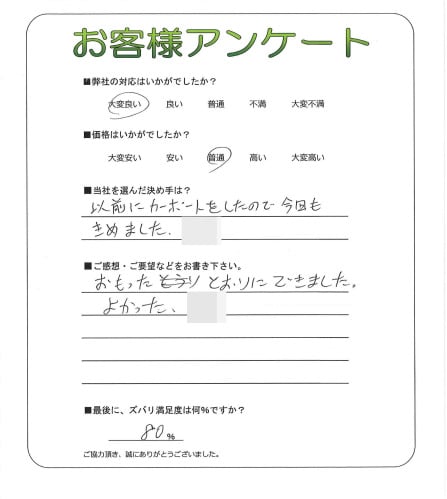 お客様アンケート
■弊社の対応はいかがでしたか？
大変良い 良い 普通 不満 大変不満
■価格はいかがでしたか？
大変安い 安い 普通 高い 大変高い
■当社を選んだ決め手は？
以前にカーポートをしたので今回も
きめました.
■ご感想・ご要望などをお書き下さい。
おもった とおりにできました。
よかった、
■最後に、ズバリ満足度は何％ですか？
80 %
ご協力頂き、誠にありがとうございました。